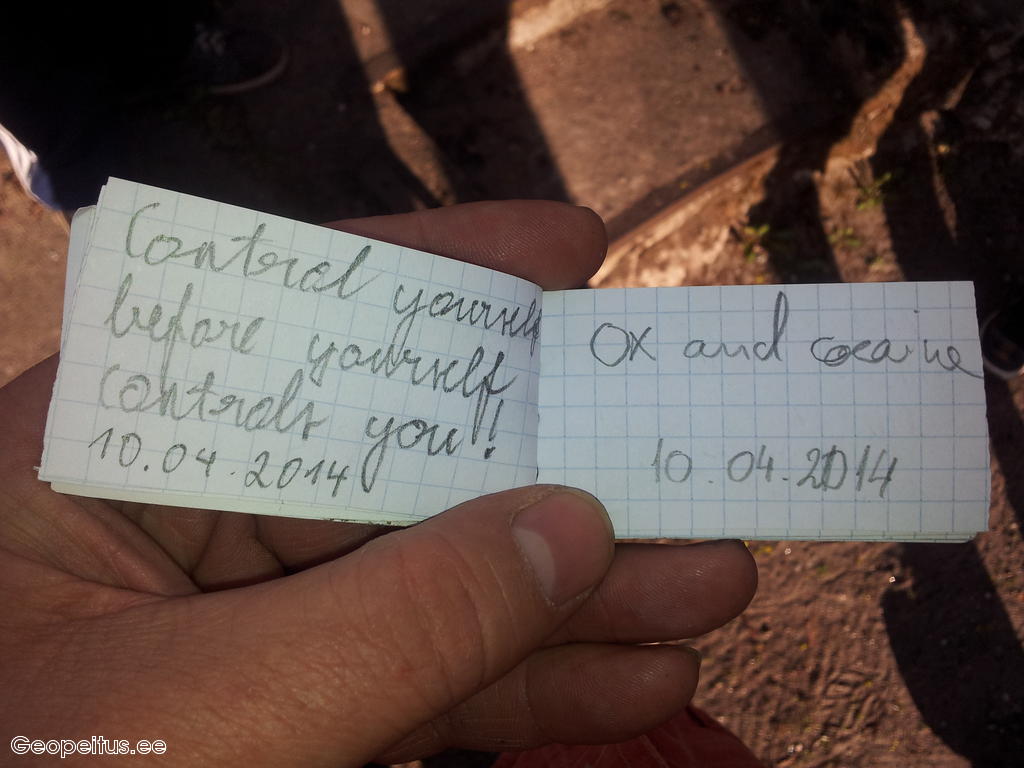 Control yourself
before yourself
controls you!
10.04.2014
Ox and cocaine
10.04.2014
Geopeitus.ee